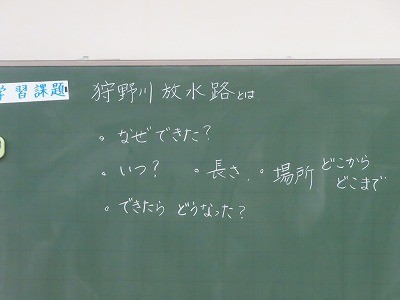 学習課題 狩野川放水路とは
。なぜできた?
。いつ? 。長さ 。場所 どこから
どこまで
。できたら どうなった?